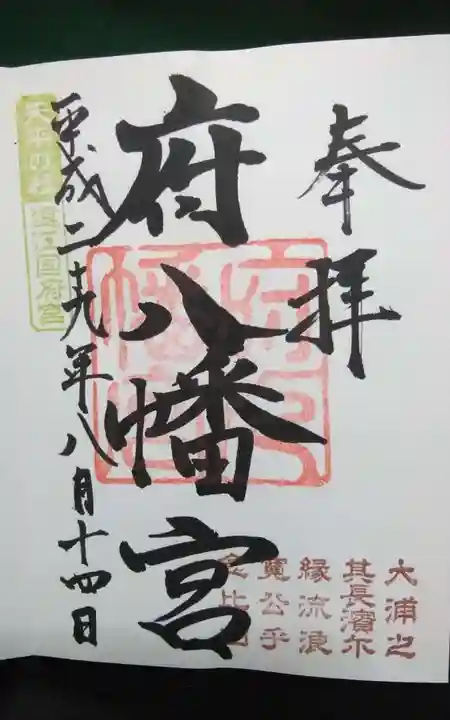 奉拝
府八幡宮
平成二十九年八月十四日
天平の社
遠江国府宮
大浦之
其長濱尓
縁流浪
寛公乎
念比日